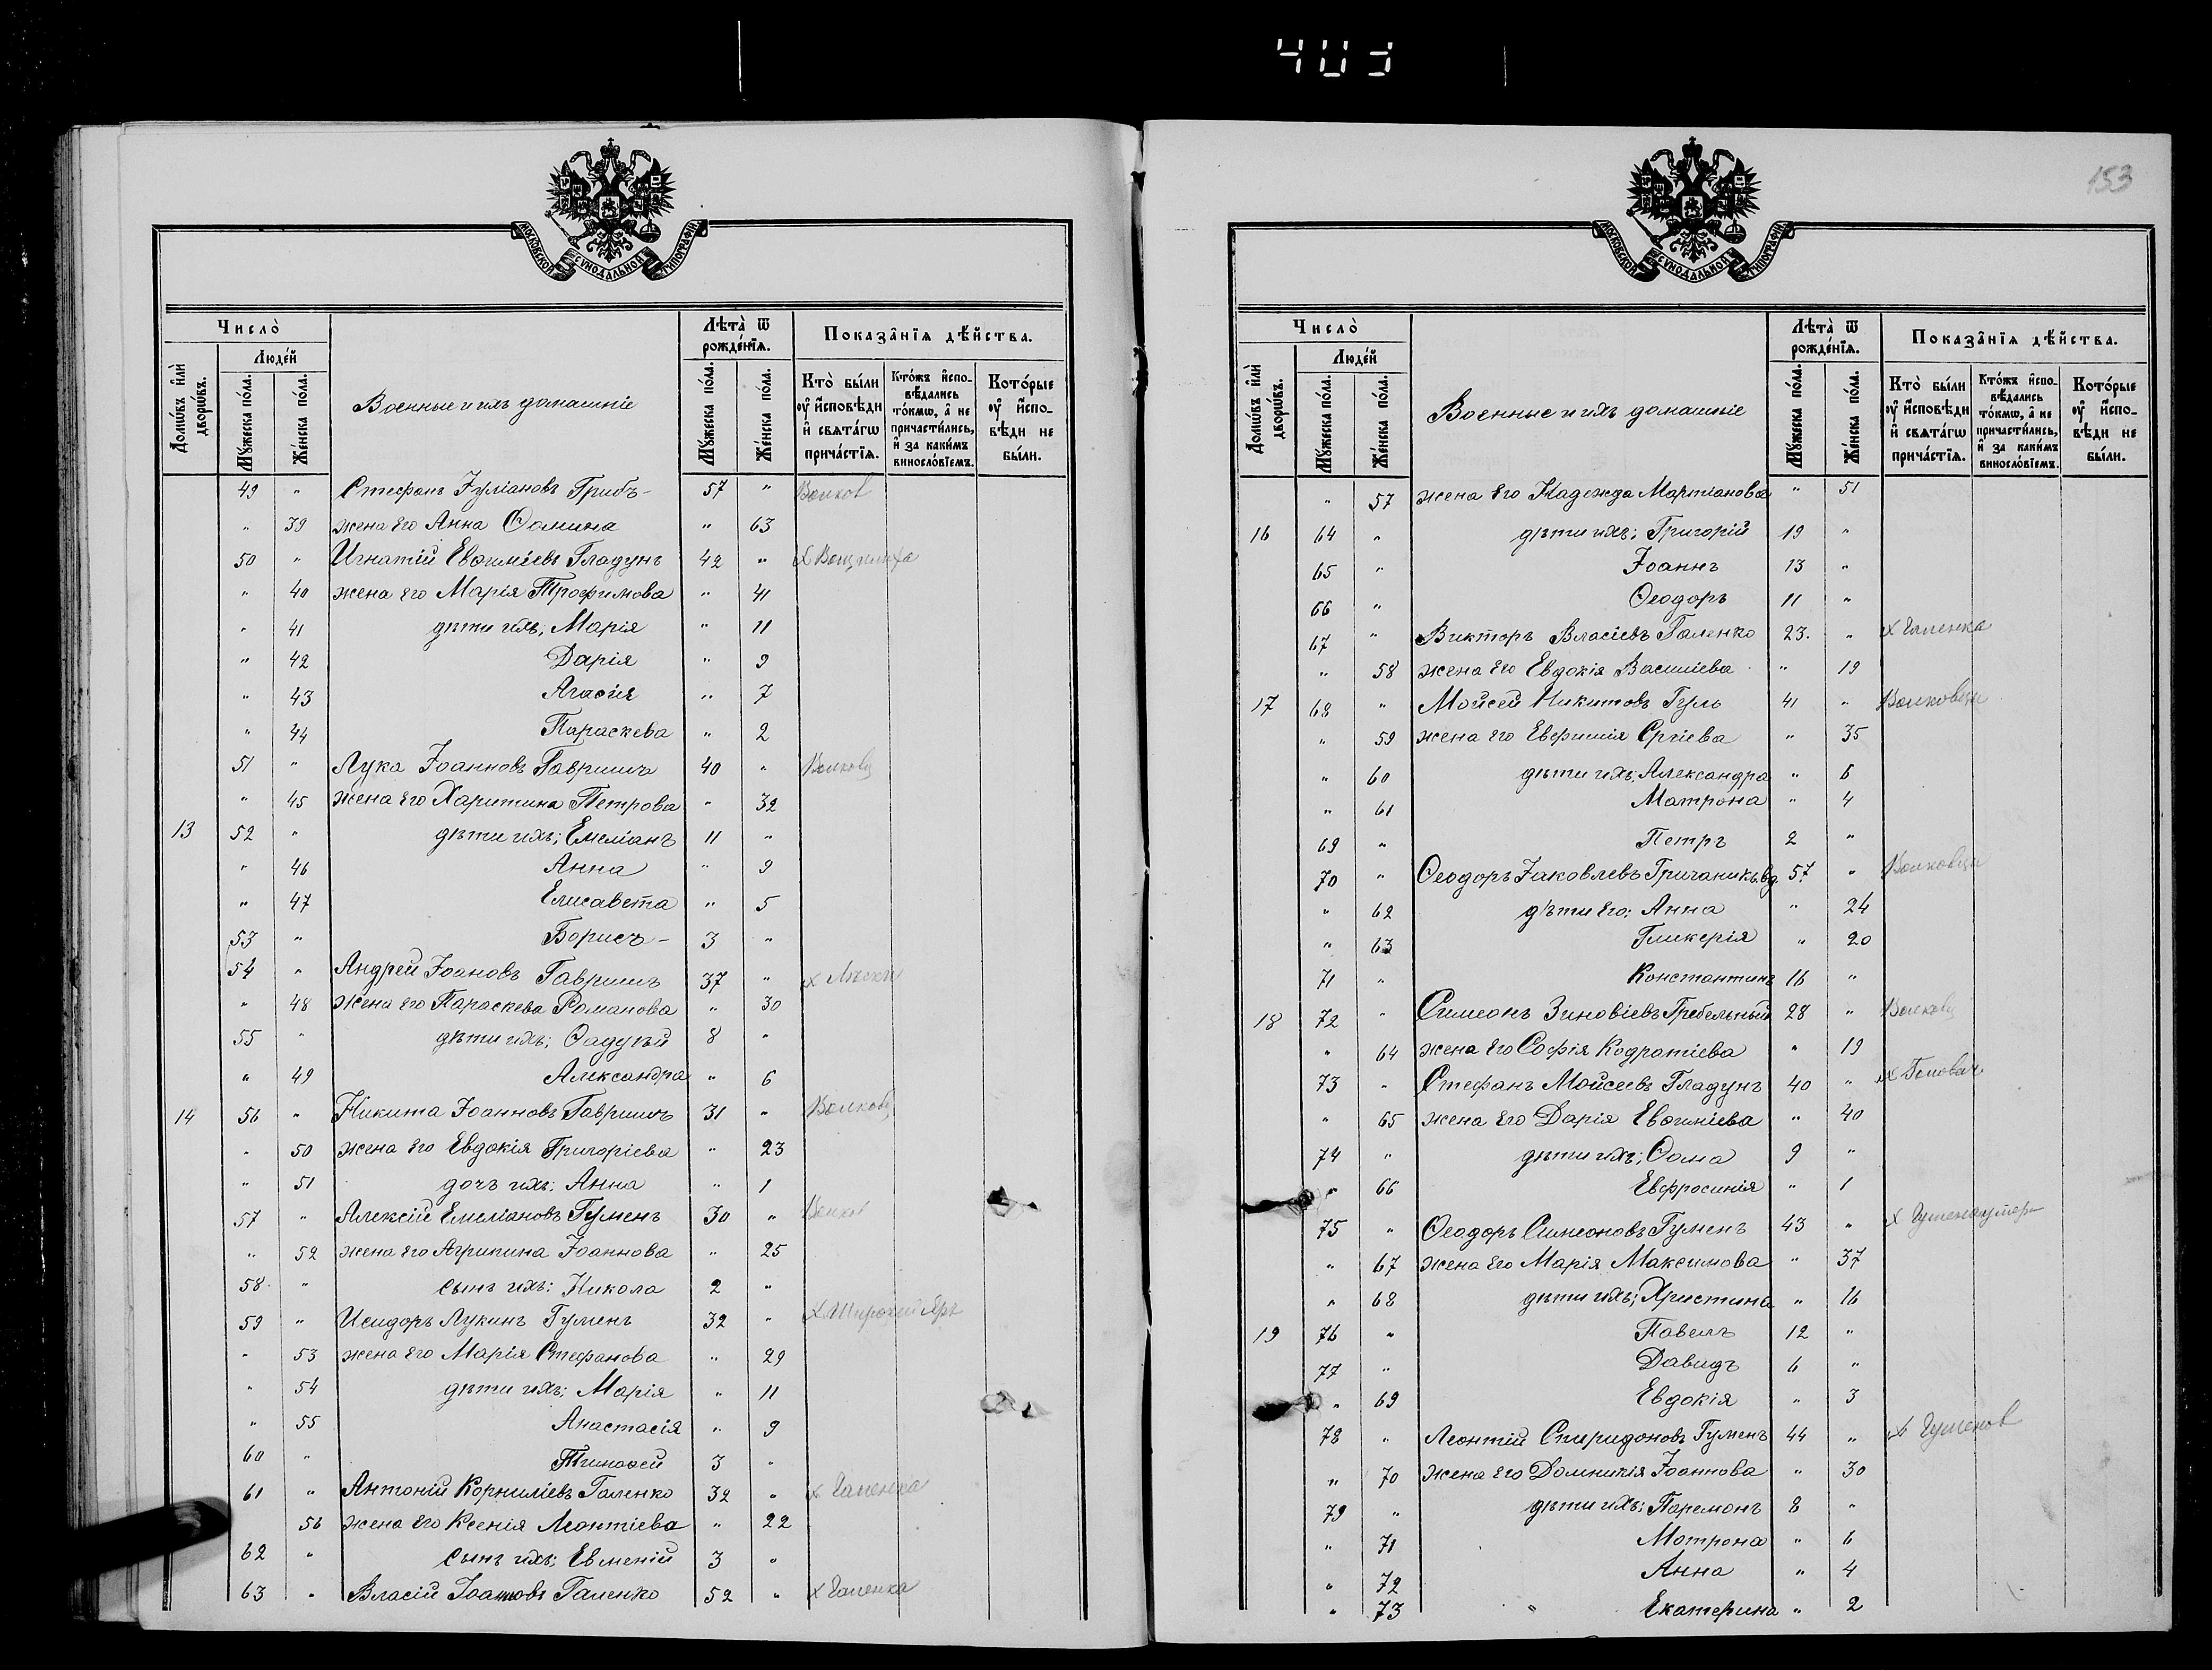 403
МОСКОВСКОЙ СУНОДАЛЬНОЙ ТИПОГРАФІИ
Число̀
Людей
Домѡвъ и҆лѝ дворѡвъ.
Мꙋжеска по́ла.
Же́нска по́ла.
Военные и ихъ домашніе
Лѣта̀ ѿ рожде́нїѧ.
Мꙋжеска по́ла.
Же́нска по́ла.
Показа̑нїѧ дѣ́йства.
Кто̀ бы́ли ᲂу҆ и҆сповѣди и҆ свѧта́гѡ прича́стїѧ.
Кто́жъ и҆спо-вѣдались то́кмѡ, а҆ не причасти́лись, и҆ за каки́мъ виносло́вїемъ.
Кото́рые ᲂу҆ и҆спо-вѣди не бы́ли.
49 " Стефанъ Іуліановъ Грибъ- 57 " Волков
" 39 жена его Анна Ѳомина " 63
50 " Игнатій Евѳиміевъ Гладунъ 42 "
" 40 жена его Марія Трофимова " 41
" 41 дѣти ихъ; Марія " 11
" 42 Дарія " 9
" 43 Агаѳія " 7
" 44 Параскева " 2
51 " Лука Іоанновъ Гавришъ 40 " Волковц
" 45 жена его Харитина Петрова " 32
13 52 " дѣти ихъ; Емеліанъ 11 "
" 46 Анна " 9
" 47 Елисавета " 5
53 " Борисъ- 3 "
54 " Андрей Іоановъ Гавришъ 37 " х
" 48 жена его Параскева Романова " 30
55 " дѣти ихъ; Ѳаддей 8 "
" 49 Александра " 6
14 56 " Никита Іоанновъ Гавришъ 31 " Волковц
" 50 жена его Евдокія Григоріева " 23
" 51 дочь ихъ; Анна " 1
57 " Алексій Емеліановъ Гуменъ 30 " Волков
" 52 жена его Агрипина Іоаннова " 25
58 " сынъ ихъ; Никола 2 "
59 " Исидоръ Лукинъ Гуменъ 32 " х Широкий Яръ
" 53 жена его Марія Стефанова " 29
" 54 дѣти ихъ; Марія " 11
" 55 Анастасія " 9
60 " Тимоѳей 3 "
61 " Антоній Корниліевъ Галенко 32 " х Галенка
56 жена его Ксенія Леонтіева " 22
62 " сынъ ихъ; Евменій 3 "
63 " Власій Іоанновъ Галенко 52 " х Галенка
153
МОСКОВСКОЙ СУНОДАЛЬНОЙ ТИПОГРАФІИ
Число̀
Людей
Домѡвъ и҆лѝ дворѡвъ.
Мꙋжеска по́ла.
Же́нска по́ла.
Военные и ихъ домашніе
Лѣта̀ ѿ рожде́нїѧ.
Мꙋжеска по́ла.
Же́нска по́ла.
Показа̑нїѧ дѣ́йства.
Кто̀ бы́ли ᲂу҆ и҆сповѣди и҆ свѧта́гѡ прича́стїѧ.
Кто́жъ и҆спо-вѣдались то́кмѡ, а҆ не причасти́лись, и҆ за каки́мъ виносло́вїемъ.
Кото́рые ᲂу҆ и҆спо-вѣди не бы́ли.
" 57 жена его Надежда Мартіанова " 51
16 64 " дѣти ихъ; Григорій 19 "
65 " Іоаннъ 13 "
66 " Ѳеодоръ 11 "
67 " Викторъ Власіевъ Галенко 23. " х Галенка
" 58 жена его Евдокія Василіева " 19
17 68 " Мойсей Никитовъ Гуль 41 " Волковцы
" 59 жена его Евфимія Сергіева " 35
" 60 дѣти ихъ; Александра " 6
" 61 Матрона " 4
69 " Петръ 2 "
70 " Ѳеодоръ Іаковлевъ Гричаникъ вд. 57. " Волковцы
" 62 дѣти его; Анна " 24
" 63 Гликерія " 20
71 " Константинъ 16 "
18 72 " Симеонъ Зиновіевъ Гребельный 28 " Волковц
" 64 жена его Софія Кодратіева " 19
73 " Стефанъ Мойсеевъ Гладунъ 40 " х Головач
" 65 жена его Дарія Евѳиміева " 40
74 " дѣти ихъ; Ѳома 9 "
" 66 Евфросинія " 1
75 " Ѳеодоръ Симеоновъ Гуменъ 43 " х
" 67 жена его Марія Максимова " 37
" 68 дѣти ихъ; Христина " 16
19 76 " Павелъ 12 "
77 " Давидъ 6 "
" 69 Евдокія " 3
78 " Леонтій Спиридоновъ Гуменъ 44 " х Гуменов
" 70 жена его Домникія Іоаннова " 30
79 " дѣти ихъ; Парамонъ 8 "
" 71 Мотрона " 6
" 72 Анна " 4
" 73 " Екатерина " 2